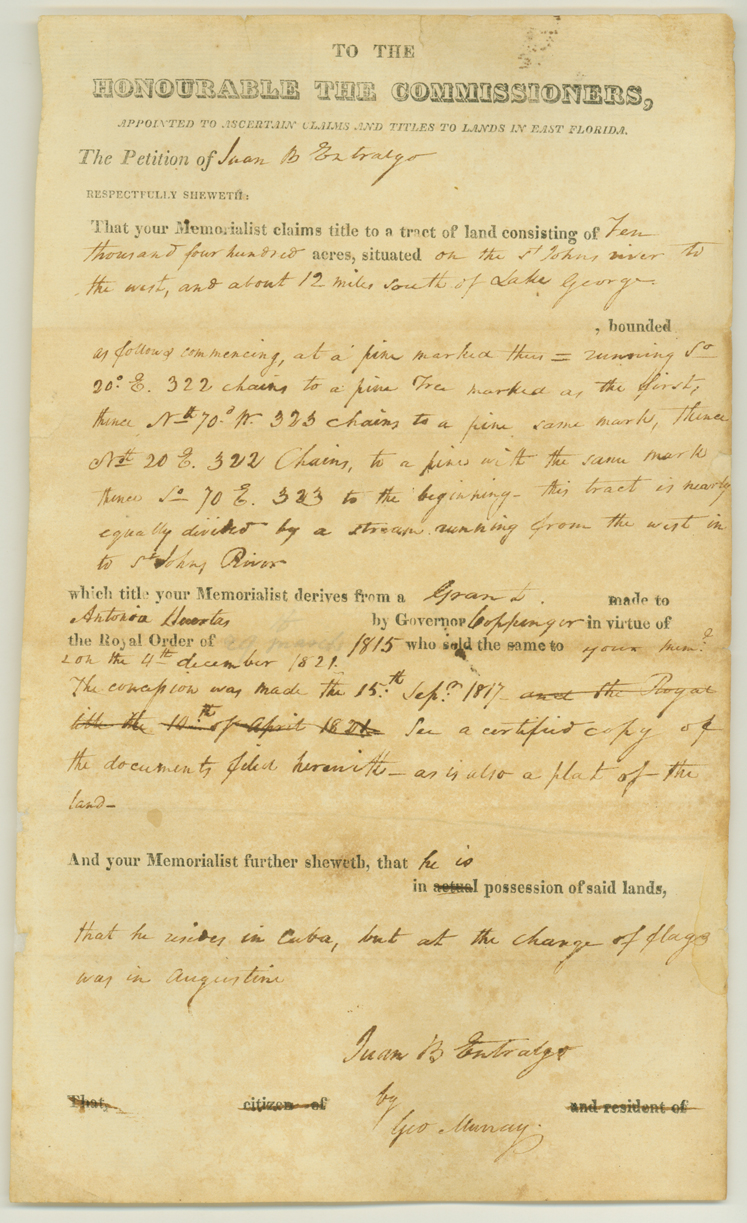 TO THE
HONOURABLE THE COMMISSIONERS,
APPOINTED TO ASCERTAIN CLAIMS AND TITLES TO LANDS IN EAST FLORIDA.
The Petition of Juan B Entralgo
RESPECTFULLY SHEWETH:
That your Memorialist claims title to a tract of land consisting of Ten
thousand four hundred acres, situated on the St Johns river to
the west, and about 12 miles south of Lake George.
, bounded
as follows commencing, at a pine marked thus = running So
20° E. 322 chains to a pine Tree marked as the first,
thence Nth 70° W. 323 chains to a pine same mark, thence
Nth 20 E. 322 Chains, to a pine with the same mark
thence So 70 E. 323 to the beginning - this tract is nearly
equally divided by a stream running from the west in
to St Johns River
which title your Memorialist derives from a Grant. made to
Antonio Huertas by Governor Coppinger in virtue of
the Royal Order of 29 March 1815 who sold the same to your mem.
on the 4th december 1821.
The concession was made the 15th Sepr 1817 and the Royal
title the 10th of April 1821. See a certified copy of
the documents filed herewith - as is also a plat of the
land -
And your Memorialist further sheweth, that he is
in actual possession of said lands,
that he resides in Cuba, but at the change of flags
was in Augustine
Juan B Entralgo
That, citizen of by and resident of
Geo Murray.